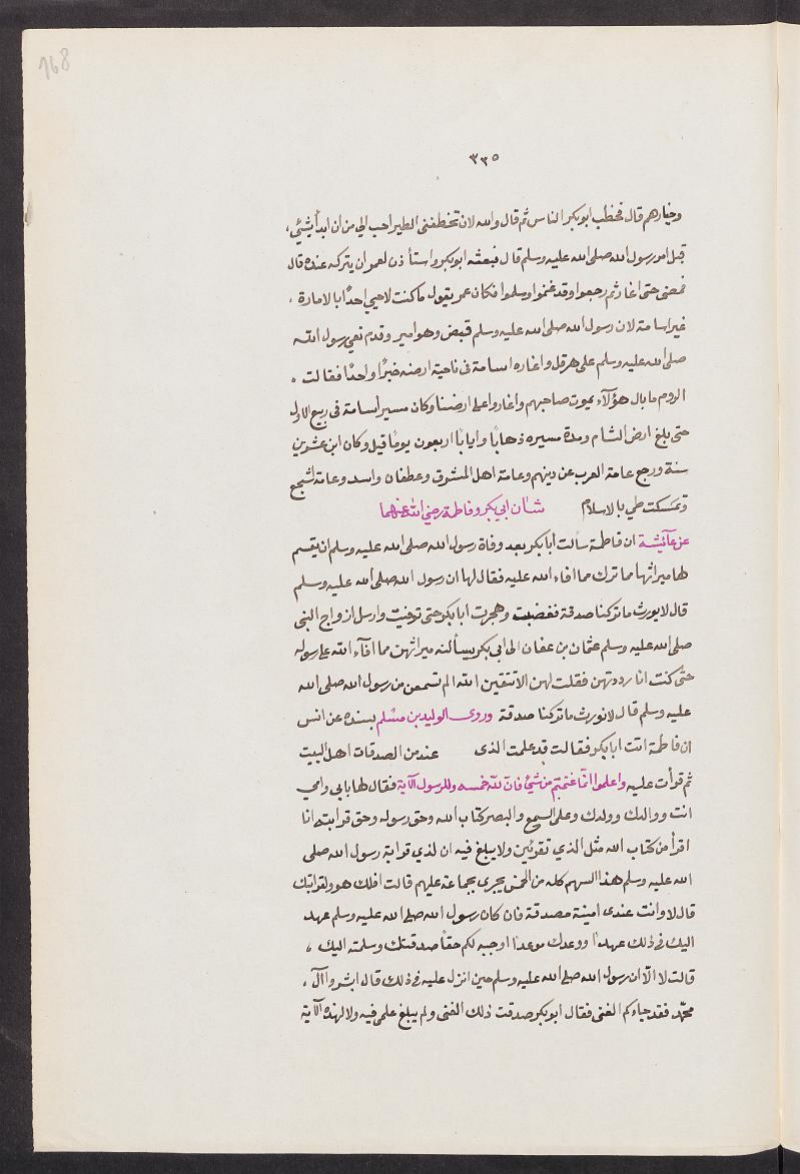 168
٣٣٥
وخيارهم قال فخطب ابو بكر الناس ثم قال والله لان تخطفني الطير احب الي من ان ابدأ بشئي،
قبل امر رسول الله صلى الله عليه وسلم قال فبعثه ابو بكر واستأذن لعمر ان يتركه عنده قال
فمضى حتى اغار ثم رجعوا وقد غنموا وسلموا فكان عمر يقول ما كنت لاحيي احدًا بالامارة ،
غير اسامة لان رسول الله صلى الله عليه وسلم قبض وهو امير وقدم نعي رسول الله
صلى الله عليه وسلم على هرقل واغاره اسامة في ناحية ارضه خبرًا واحدًا فقالت ،
الروم ما بال هؤلآء يموت صاحبهم واغاروا على ارضنا وكان مسير اسامة في ربيع الاول
حتى بلغ ارض الشام ومدة مسيره ذهابًا وايابًا اربعون يومًا قيل وكان ابن عشرين
سنة ورجع عامة العرب عن دينهم وعامة اهل المشرق وغطفان واسد وعامة اشجع
وتمسكت طي بالاسلام شان ابي بكر وفاطمة رضي الله عنهما
عن عآئيشة ان فاطمة سالت ابا بكر بعد وفاة رسول الله صلى الله عليه وسلم ان يقسم
لها ميراثها مما ترك مما افاء الله عليه فقال لها ان رسول الله صلى الله عليه وسلم
قال لا يورث ما تركنا صدقة فغضبت وهجرت ابا بكر حتى توفيت وارسل ازواج النبي
صلى الله عليه وسلم عثمان بن عفان الى ابي بكر يسألنه ميراثهن مما افآء الله على رسوله
حتى كنت انا رددتهن فقلت لهن الا تتقين الله الم تسمعن من رسول الله صلى الله
عليه وسلم قال لا نورث ما تركنا صدقة وروى الوليد بن مسلم بسنده عن انس
ان فاطمة اتت ابا بكر فقالت قد علمت الذى عنه من الصدقات اهل البيت
ثم قرأت عليه واعلموا انما غنمتم من شئ فان لله خمسه وللرسول الآية فقال لها بابي وامي
انت ووالدك وولدك وعلى السمع والبصر كتاب الله وحق رسوله وحق قرابته انا
اقرأ من كتاب الله مثل الذي تقرئين ولا يبلغ فيه ان لذي قرابة رسول الله صلى
الله عليه وسلم هذا السهم كله من الخمس يجرى بجماعة عليهم قالت افلك هو ولقرابتك
قال لا وانت عندى امينة مصدقة فان كان رسول الله صلى الله عليه وسلم عهد
اليك في ذلك عهدًا ووعدك موعدًا اوجبه لكم حقًا صدقتك وسلمته اليك ،
قالت لا الّا ان رسول الله صلى الله عليه وسلم حين انزل عليه في ذلك قال ابشروا آل ،
محمّد فقد جاءكم الغنى فقال ابو بكر صدقت ذلك الغنى ولم يبلغ علمي فيه ولا لهذه الآية